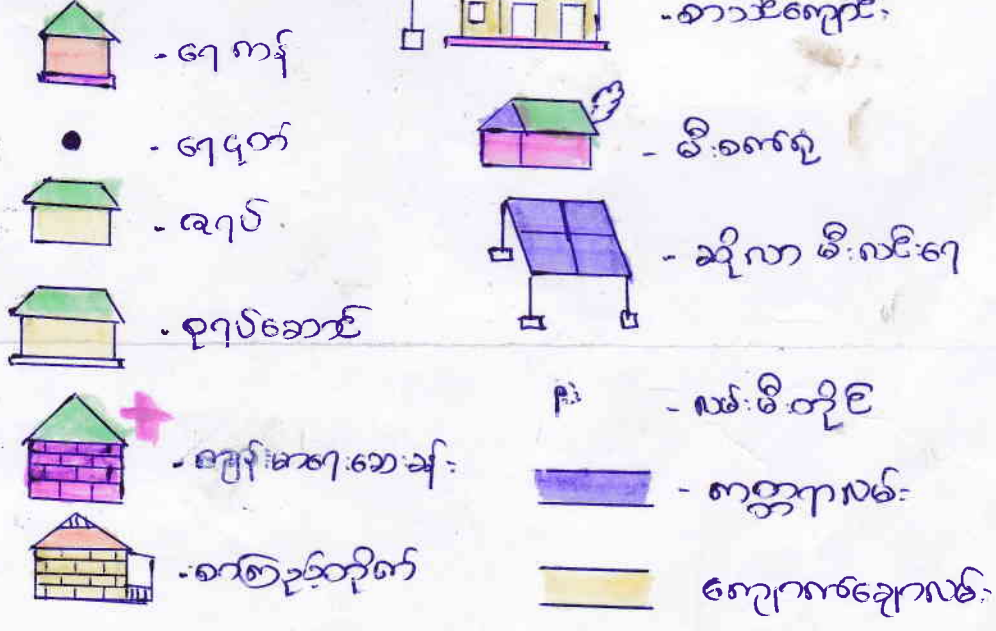 - ရေကန်
- ရေတွင်း
- ဇရပ်
- စုရပ်ဆောင်
- ကျန်းမာရေးဆေးခန်း
- စာကြည့်တိုက်
- စာသင်ကျောင်း
- မီးစက်ရုံ
- ဆိုလာ မီးလင်းရေ
- လမ်းမီးတိုင်
- ကတ္တရာလမ်း
ကျောက်ချောလမ်း